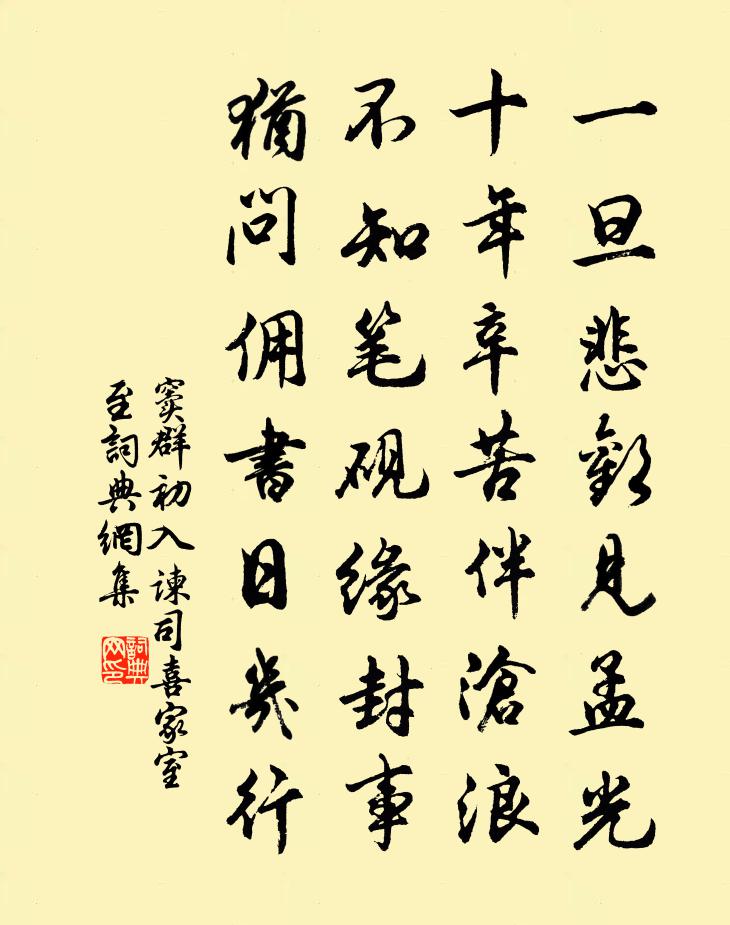 一旦悲歡見孟光
十年辛苦伴滄浪
不知笔砚缘封事
猶問佣書日幾行
窦群初入諫司喜家室
至詞典網集
詞典网印